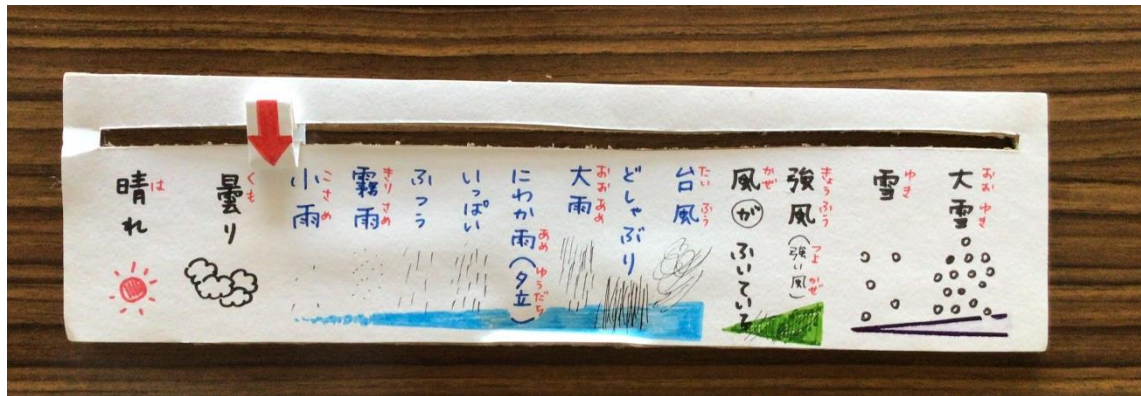 晴れ
は
曇り
くも
小雨
こさめ
霧雨
きりさめ
ふつう
いっぱい
にわか雨(夕立)
あめ ゆうだち
大雨
おおあめ
どしゃぶり
台風
たいふう
風がふいていて
かぜ
強風(強い風)
きょうふう つよ かぜ
雪
ゆき
大雪
おおゆき